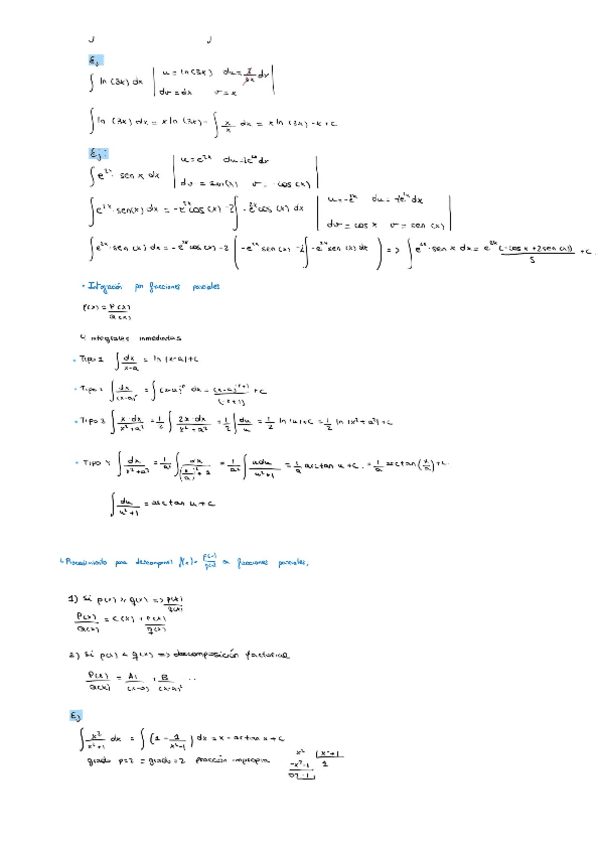 Ej
∫ ln (3x) dx | u = ln(3x) du = 3/3x dx
dv = dx v = x |
∫ ln (3x) dx = x ln (3x) - ∫ x/x dx = x ln (3x) - x + C
Ej:
∫ e^2x · sen x dx | u = e^2x
dv = sen(x) v = -cos(x) |
∫ e^2x · sen(x) dx = -e^2x cos(x) - 2 ∫ -e^2x cos(x) dx
dv = cos x v = sen(x) |
∫ e^2x · sen(x) dx = -e^2x cos(x) - 2 ( -e^2x sen(x) - 2 ∫ -e^2x sen(x) dx ) => ∫ e^2x · sen x dx = e^2x (-cos x + 2 sen(x))/5 + C
• Integración por fracciones parciales
f(x) = P(x)/Q(x)
4 integrales inmediatas
• Tipo 1 ∫ dx/x-a = ln |x-a| + C
• Tipo 2
• Tipo 3 ∫ x·dx/x²+a² = 1/2 ∫ 2x·dx/x²+a² = 1/2 ∫ du/u = 1/2 ln |u| + C = 1/2 ln (x²+a²) + C
• Tipo 4 ∫ dx/x²+a² = 1/a² ∫ dx/(x/a)²+1 = 1/a² ∫ adu/u²+1 = 1/a arctan u + C = 1/a arctan (x/a) + C
∫ du/u²+1 = arctan u + C
Procedimiento para descomponer f(x) = P(x)/Q(x) en fracciones parciales:
1) Si p(x) ≥ q(x) => p(x)/q(x)
P(x)/Q(x) = C(x) + r(x)/q(x)
2) Si p(x) < q(x) => descomposición factorial
P(x)/Q(x) = A/(x-a) + B/(x-a)² ..
Ej
∫ x²/x²+1 dx = ∫ (1 - 1/x²+1) dx = x - arctan x + C
grado p=2 = grado=2 fracción impropia
x² | x²+1
-x²-1 1